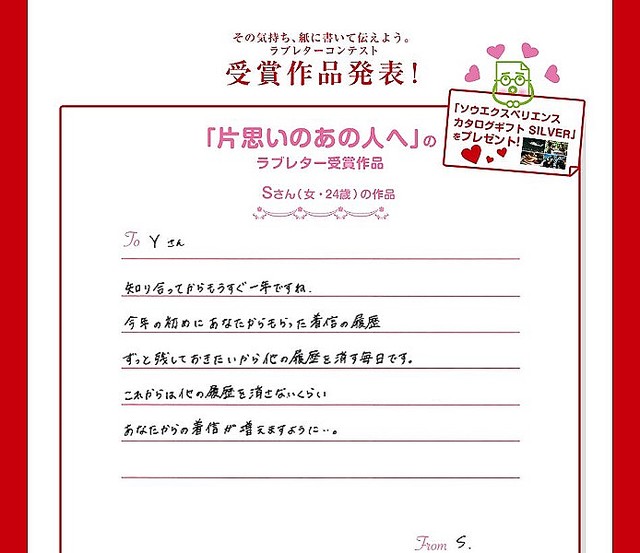 その気持ち、紙に書いて伝えよう。
ラブレターコンテスト
受賞作品発表!
「ソウエクスペリエンス
カタログギフト SILVER」
をプレゼント!
「片思いのあの人へ」の
ラブレター受賞作品
Sさん(女・24歳)の作品
To Yさん
知り合ってからもうすぐ一年ですね.
今年の初めにあなたからもらった着信の履歴
ずっと残しておきたいから他の履歴を消す毎日です。
これからは他の履歴を消さないくらい
あなたからの着信が増えますように…。
From S.